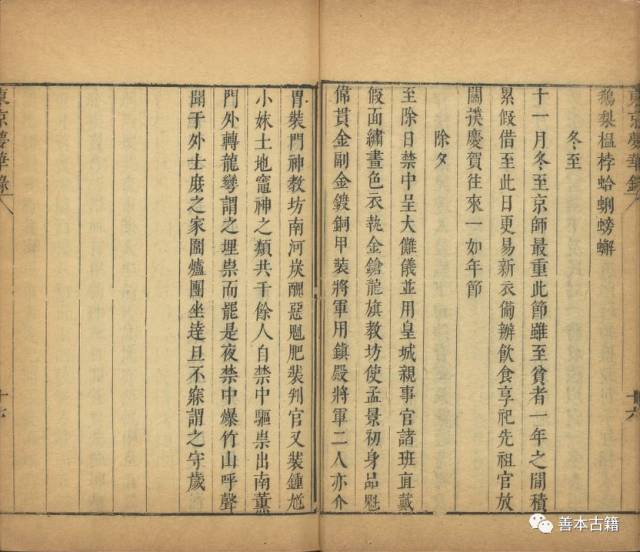 鵝梨榲桲蛤蜊螃蠏
冬至
十一月冬至京師最重此節雖至貧者一年之間積
累假借至此日更易新衣備辦飲食享祀先祖官放
關撲慶賀往來一如年節
除夕
至除日禁中呈大儺儀並用皇城親事官諸班直戴
假面繡畫色衣執金鎗龍旗教坊使孟景初身品魁
偉貫金副金鍍銅甲裝將軍用鎮殿將軍二人亦介
胄裝門神教坊南河炭醜惡魁肥裝判官又裝鍾馗
小妹土地竈神之類共千餘人自禁中驅祟出南薰
門外轉龍彎謂之埋祟而罷是夜禁中爆竹山呼聲
聞于外士庶之家圍爐團坐達旦不寐謂之守歲
東京夢華錄
十六
東京夢華錄
十六
善本古籍